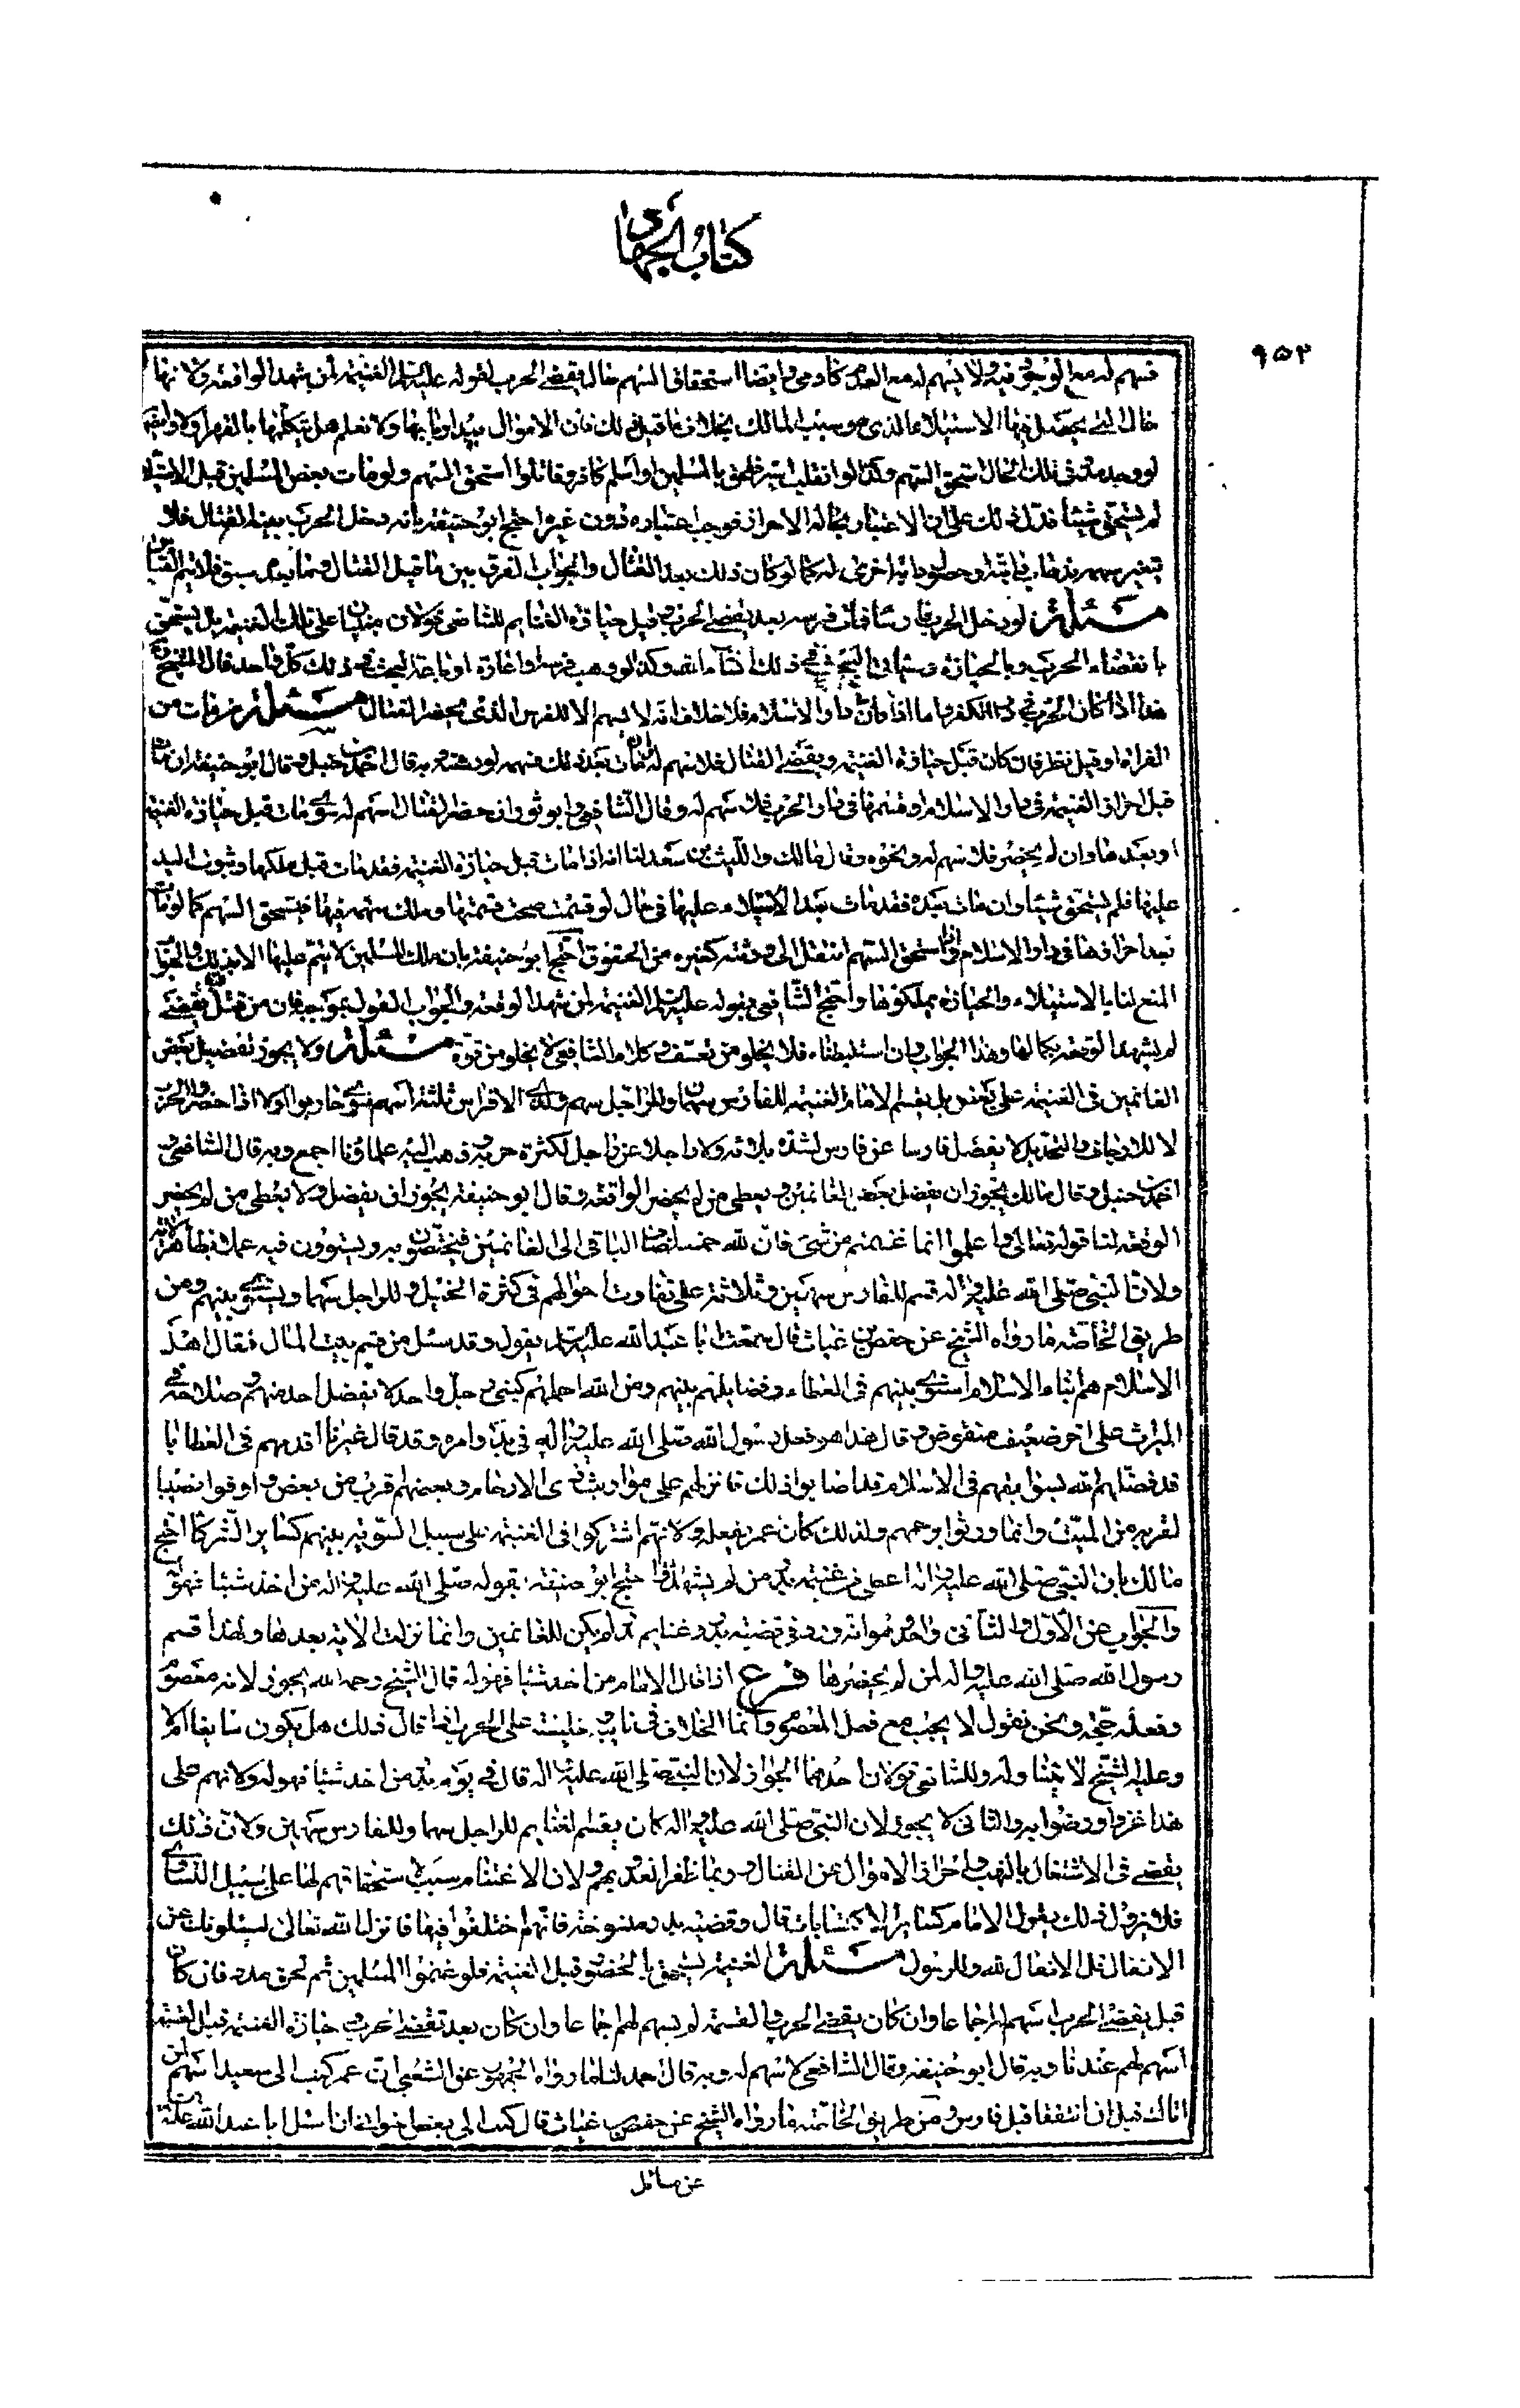 كتاب الجهاد
٩٥٢
فيسهم له مع الوجود فيه ولا يسهم له مع العدم كالآدمي وأيضا استحقاق السهم حالة تقضي الحرب لقوله عليه السلم الغنيمة لمن شهد الواقعة ولانها
حال التي يحصل فيها الاستيلاء الذي هو سبب الملك بخلاف ما قبل ذلك فان الاموال بيد اربابها ولا نعلم هل يتملكها بالقهر أو لا
لو وجد مدد في تلك الحال استحق السهم وكذا لو انفلت اسير فلحق بالمسلمين او اسلم كافر وقاتلوا استحق السهم ولو مات بعض المسلمين قبل الاستيلاء
لم يستحق شيئا فدل ذلك على ان الاعتبار بحالة الاحراز فوجب اعتباره دون غيره احتج ابو حنيفة بانه دخل الحرب بنية القتال فلا
يتغير سهمه بذهاب دابته او حصول دابة اخرى له كما لو كان ذلك بعد القتال والجواب الفرق بين ما قبل القتال وبما بعده سبق فلا يتم القياس
مسئلة لو دخل الحرب فارسا فمات فرسه بعد تقضي الحرب وقبل حيازة الغنايم للشافعي قولان مبنيان على ان ملك الغنيمة هل يستحق
بانقضاء الحرب وبالحيازة
هذا اذا كان الحرب في دار الكفر واما اذا كان في دار الاسلام فلا خلاف انه لا يسهم الا للفرس الذي يحضر القتال مسئلة من مات من
الغزاة او قتل نظر فان كان قبل حيازة الغنيمة وتقضي القتال فلا سهم له وان مات بعد ذلك فسهمه لورثته وبه قال احمد بن حنبل وقال ابو حنيفة ان مات
قبل احراز الغنيمة في دار الاسلام او قسمتها في دار الحرب فلا سهم له وقال الشافعي وابو ثور ان حضر القتال اسهم له سواء مات قبل حيازة الغنيمة
او بعدها وان لم يحضر فلا سهم له ونحوه وقال مالك والليث بن سعد لنا انه اذا مات قبل حيازة الغنيمة فقد مات قبل ملكها وثبوت اليد
عليها فلم يستحق شيئا وان مات بعده فقد مات بعد الاستيلاء عليها في حال لو قسمت صحت قسمتها وملك سهمه فيها فيستحق السهم كما لو مات
بعد احرازها في دار الاسلام واذا استحق السهم انتقل الى ورثته كغيره من الحقوق احتج ابو حنيفة بان ملك المسلمين لا يتم عليها الا بذلك والجواب
المنع لنا بالاستيلاء والحيازة يملكونها واحتج الشافعي بقوله عليه السلم الغنيمة لمن شهد الوقعة والجواب القول بموجبه فان من قتل قبل تقضي
لم يشهد الوقعة بكمالها وهذا الجواب وان استنبطناه فلا يخلو من تعسف وكلام الشافعي لا يخلو من قوة مسئلة ولا يجوز تفضيل بعض
الغانمين في الغنيمة على بعض بل يقسم الامام الغنيمة للفارس سهمان وللراجل سهم ولذي الافراس ثلثة اسهم سواء حاربوا اولا اذا حضروا للحرب
لا للارجاف والتخذيل لا يفضل فارسا عن فارس لشدة بلائه ولا راجلا عن راجل لكثرة حربه ذهب اليه علماؤنا اجمع وبه قال الشافعي
احمد بن حنبل وقال مالك يجوز ان يفضل بعض الغانمين ويعطى من لم يحضر الواقعة وقال ابو حنيفة يجوز ان يفضل ولا يعطى من لم يحضر
الوقعة لنا قوله تعالى واعلموا انما غنمتم من شيء فان لله خمسه اضاف الباقي الى الغانمين فيختصون به ويستوون فيه عملا بظاهر الاية
ولان النبي صلى الله عليه واله قسم للفارس سهمين وثلاثة على تفاوت احوالهم في كثرة الخيل وللراجل سهما ويسوي بينهم ومن
طريق الخاصة ما رواه الشيخ عن حفص بن غياث قال سمعت ابا عبد الله عليه السلم يقول وقد سئل عن قسم بيت المال فقال اهل
الاسلام هم ابناء الاسلام اسوي بينهم في العطاء وفضايلهم بينهم وبين الله اجعلهم كبني رجل واحد لا يفضل احد منهم لفضله وصلاحه في
الميراث على اخر ضعيف منقوص وقال هذا هو فعل رسول الله صلى الله عليه واله في بدو امره وقد قال غيرنا اقدمهم في العطاء بما
قد فضلهم الله بسوابقهم في الاسلام
لقربه من الميت وانما ورثوا برحمهم ولذلك كان عمر يفعله ولانهم اشتركوا في الغنيمة على سبيل التسوية بينهم كساير الشركاء احتج
مالك بان النبي صلى الله عليه واله اعطى من غنيمة بدر من لم يشهدها واحتج ابو حنيفة بقوله صلى الله عليه واله من اخذ شيئا فهو له
والجواب عن الاول والثاني واحد وهو انه ورد في قضية بدر وغنايم بدر لم يكن للغانمين وانما نزلت الاية بعدها ولهذا قسم
رسول الله صلى الله عليه واله لمن لم يحضرها فرع اذا قال الامام من اخذ شيئا فهو له قال الشيخ رحمه الله يجوز لانه معصوم
وفعله حجة ونحن نقول لا يجب مع فعل المعصوم وانما الخلاف في نايبه وخليفته على الحرب اذا قال ذلك هل يكون سايغا ام لا
وعليه الشيخ لا يتناوله وللشافعي قولان احدهما الجواز لان النبي صلى الله عليه واله قال في يوم بدر من اخذ شيئا فهو له ولانهم على
هذا غزوا ورضوا به والثاني لا يجوز لان النبي صلى الله عليه واله كان يقسم الغنايم للراجل سهما وللفارس سهمين ولان ذلك
يفضي الى الاشتغال بالنهب واحراز الاموال عن القتال وربما ظفر العدو بهم ولان الاغتنام سبب لاستحقاقهم لها على سبيل التساوي
فلا يزول ذلك بقول الامام كساير الاكتسابات قال وقضية بدر منسوخة فانهم اختلفوا فيها فانزل الله تعالى يسئلونك عن
الانفال قل الانفال لله والرسول مسئلة الغنيمة يستحق بالحضور قبل القسمة فلو غنموا المسلمين ثم لحق مدد فان كان
قبل تقضي الحرب اسهم لهم اجماعا وان كان بعد تقضي الحرب والقسمة لم يسهم لهم اجماعا وان كان بعد تقضي الحرب وحيازة الغنيمة قبل القسمة
اسهم لهم عندنا وبه قال ابو حنيفة وقال الشافعي لا سهم له وبه قال احمد لنا ما رواه الجمهور عن الشعبي ان عمر كتب الى سعد اسهم لمن
اتاك قبل ان تتفقا قتلى فارس ومن طريق الخاصة ما رواه الشيخ عن حفص بن غياث قال كتب الى بعض اخواني ان اسئل ابا عبد الله عليه السلم
عن مسائل